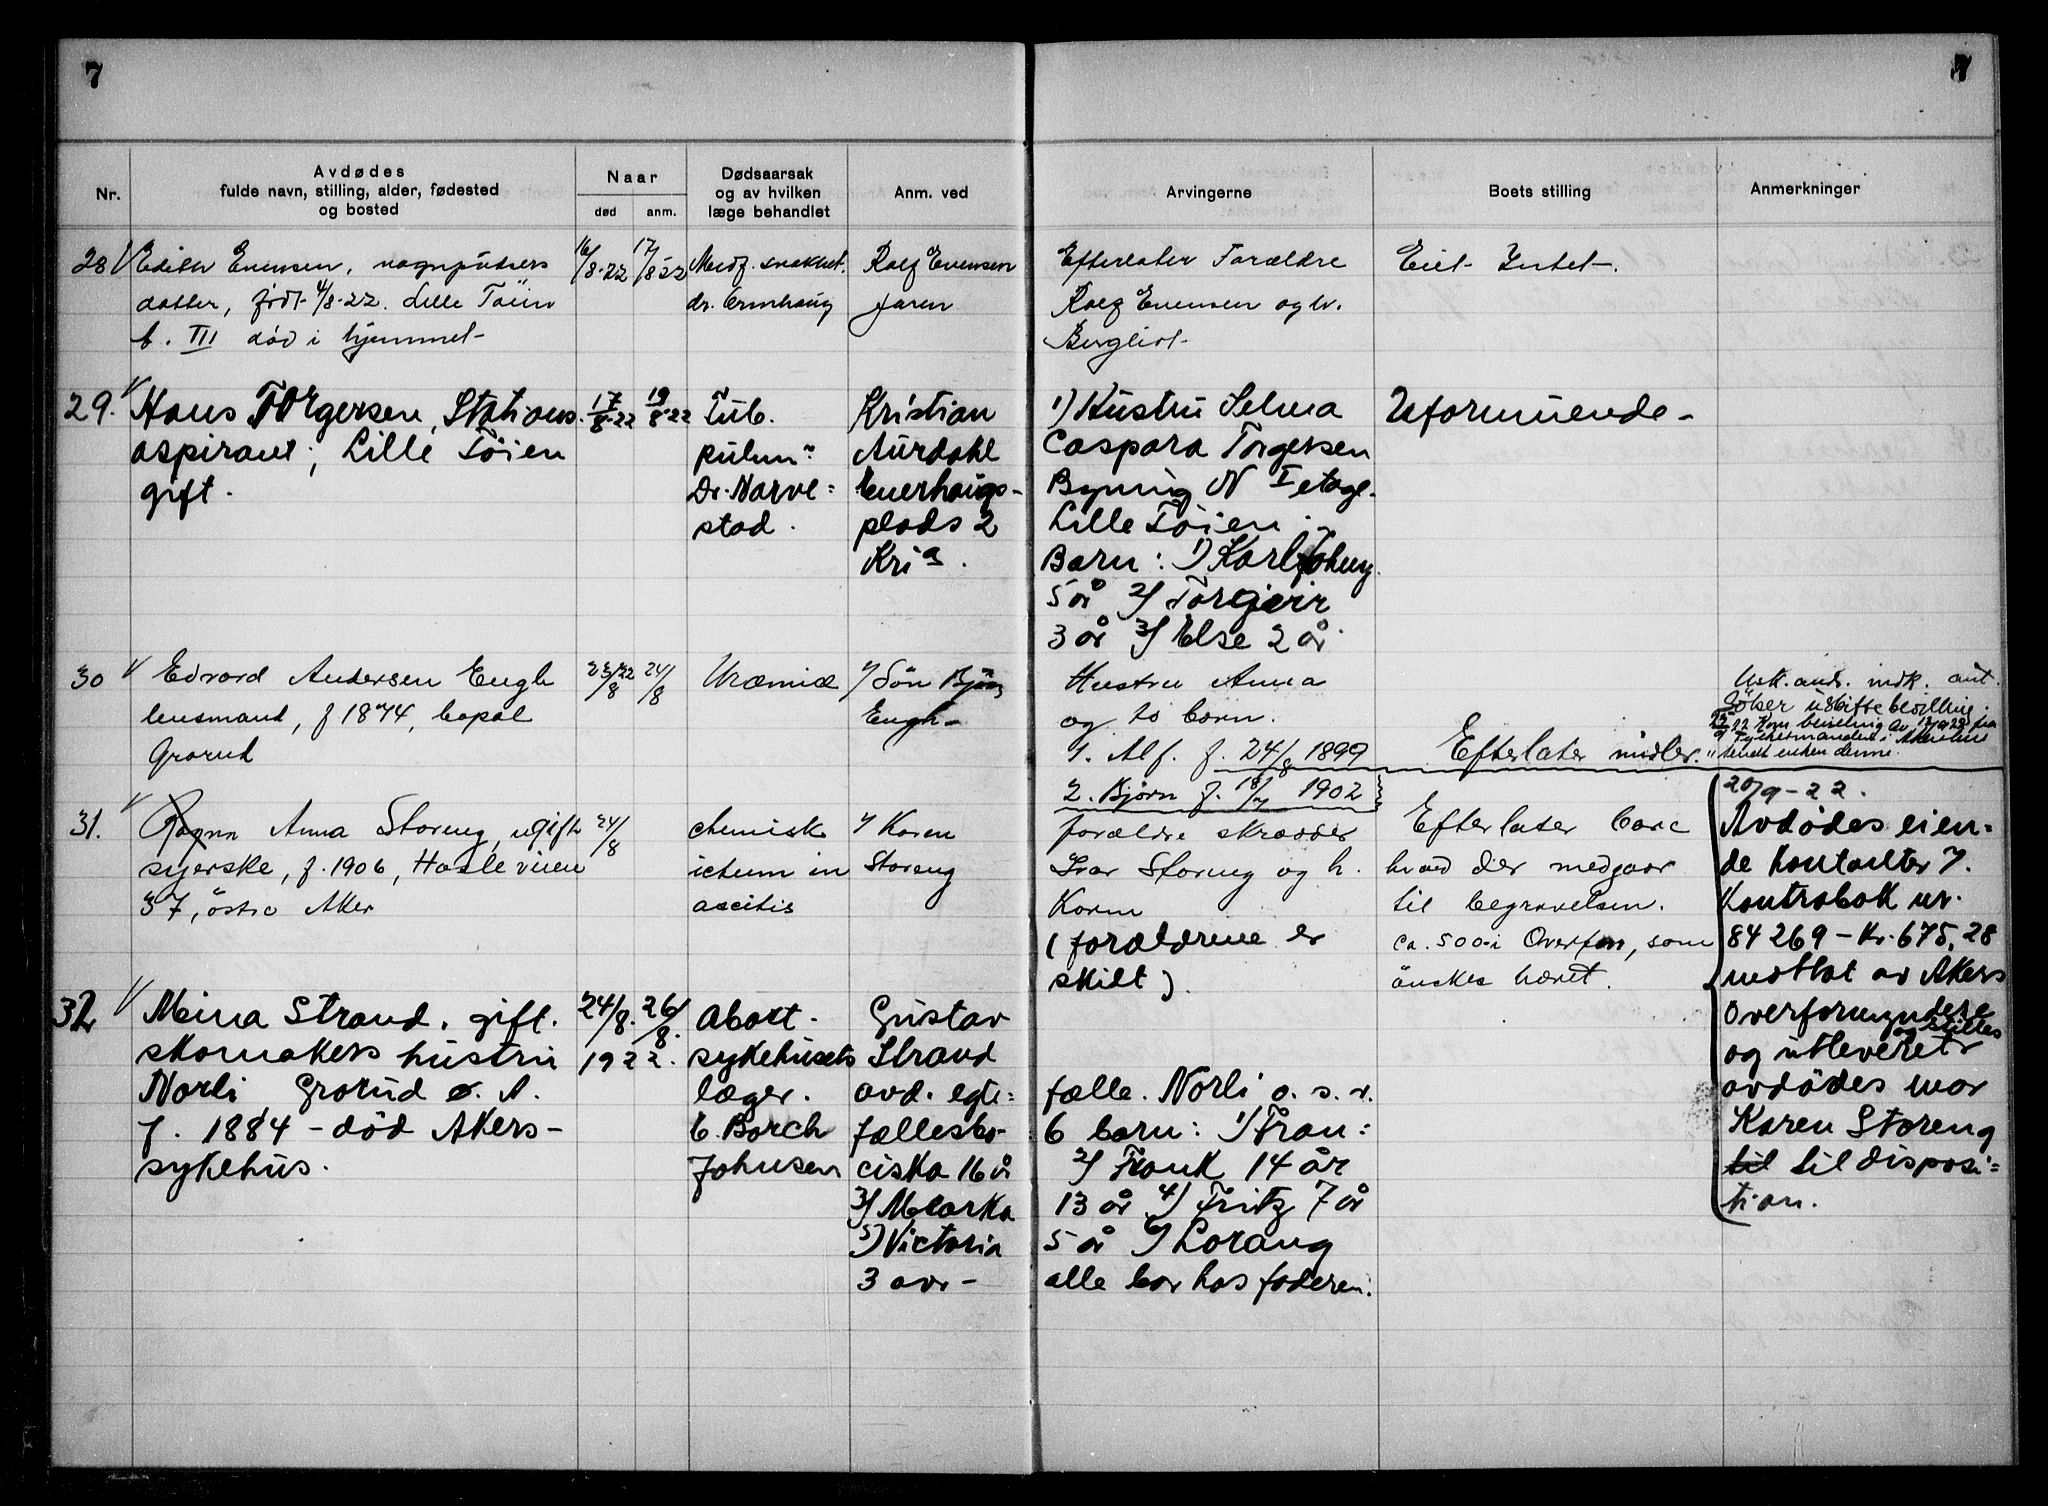 7
7
Nr.
Avdødes
fulde navn, stilling, alder, fødested
og bosted
Naar
død
anm.
Dødsaarsak
og av hvilken
læge behandlet
Anm. ved
Arvingerne
Boets stilling
Anmerkninger
28 Edith Evensen, vognpudsers
datter, født 4/8-22. Lille Töien
b. III død i hjemmet
16/8-22
17/8 22
Medf. svakhet.
dr. Ormhaug
Rolf Evensen
faren
Efterlater Forældre
Rolf Evensen og h.
Bergliot
Eiet Intet.
29. Hans Torgersen, Stations-
aspirant, Lille Töien
gift.
17/8-22
19/8-22
Tub.
pulm:
Dr. Narve=
stad.
Kristian
Aurdahl
Enerhaugs-
plads 2
Kria.
1) Hustru Selma
Caspara Torgersen
Bygning N I etage.
Lille Töien.
Barn: 1) Karl Johny
5 år 2) Torgeir
3 år 3) Else 2 år
Uformuende-
30 Edvard Andersen Engh
lensmand, f 1874, bopæl
Grorud
23/8 22
24/8
Uræmie
v/ Sön Björn
Engh-
Hustru Anna
og to barn.
1. Alf. f. 24/8 1899
2. Bjørn f. 18/7 1902
Efterlater midler.
Söker uskiftebevilling.
31. Ragna Anna Storeng, ugift
syerske, f. 1906, Hasleveien
37, östre Aker
24/8
chemisk
in
ascitis
v/ Karen
Storeng
forældre skrædder
Ivar Storeng og h.
Karen
(forældrene er
skilt).
Efterlater bare
hvad der medgaar
til begravelsen.
ca. 500 i Overfor, som
önskes hævet.
20/9-22.
Avdødes eien=
de Kontanter i
Kontrabok nr.
84269 - Kr. 675,28
mottat av Akers
overformynderi
og utleveret og stilles
avdødes mor
Karen Storeng
til til disposi=
tion.
32 Meina Strand. gift.
skomakers hustru
Norli Grorud ø. A.
f. 1884 - död Akers-
sykehus.
24/8. 26/8.
1922.
Abort-
sykehusets
læger.
C. Borch
Johnsen
Gustav
Strand
avd. egte=
fællesbo-
fælle. Norli o. s. v.
6 barn: 1) Fran=
ciska 16 år
2) Frank 14 år
3) Mlarka
13 år 4) Fritz 7 år
5) Victoria
5 år 6) Lorang
3 avr-
alle bor hos faderen.